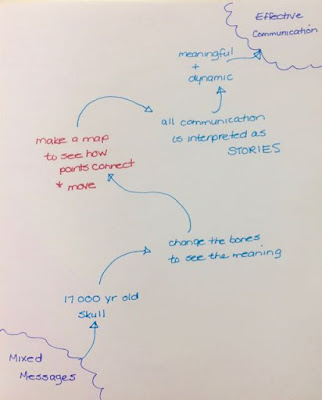 Effective
Communication
meaningful
+
dynamic
all communication
is interpreted as
STORIES
make a map
to see how
points connect
+ move
change the bones
to see the meaning
17 000 yr old
skull
Mixed
Messages